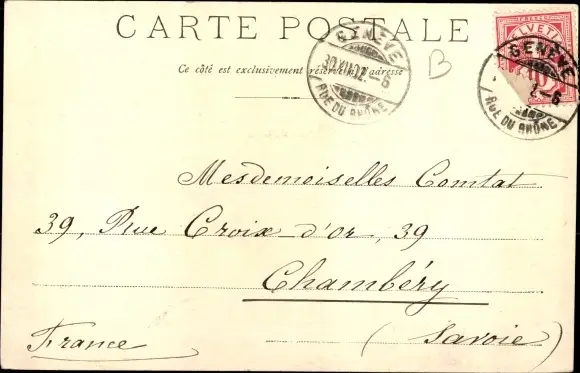 CARTE POSTALE
Ce côté est exclusivement réservé à l'adresse
GENÈVE
RUE DU RHÔNE
B
HELVETIA
FRANCO
10
GENÈVE
RUE DU RHÔNE
Mesdemoiselles Comtat
39, Rue Croix d'or, 39
Chambéry
France (Savoie)